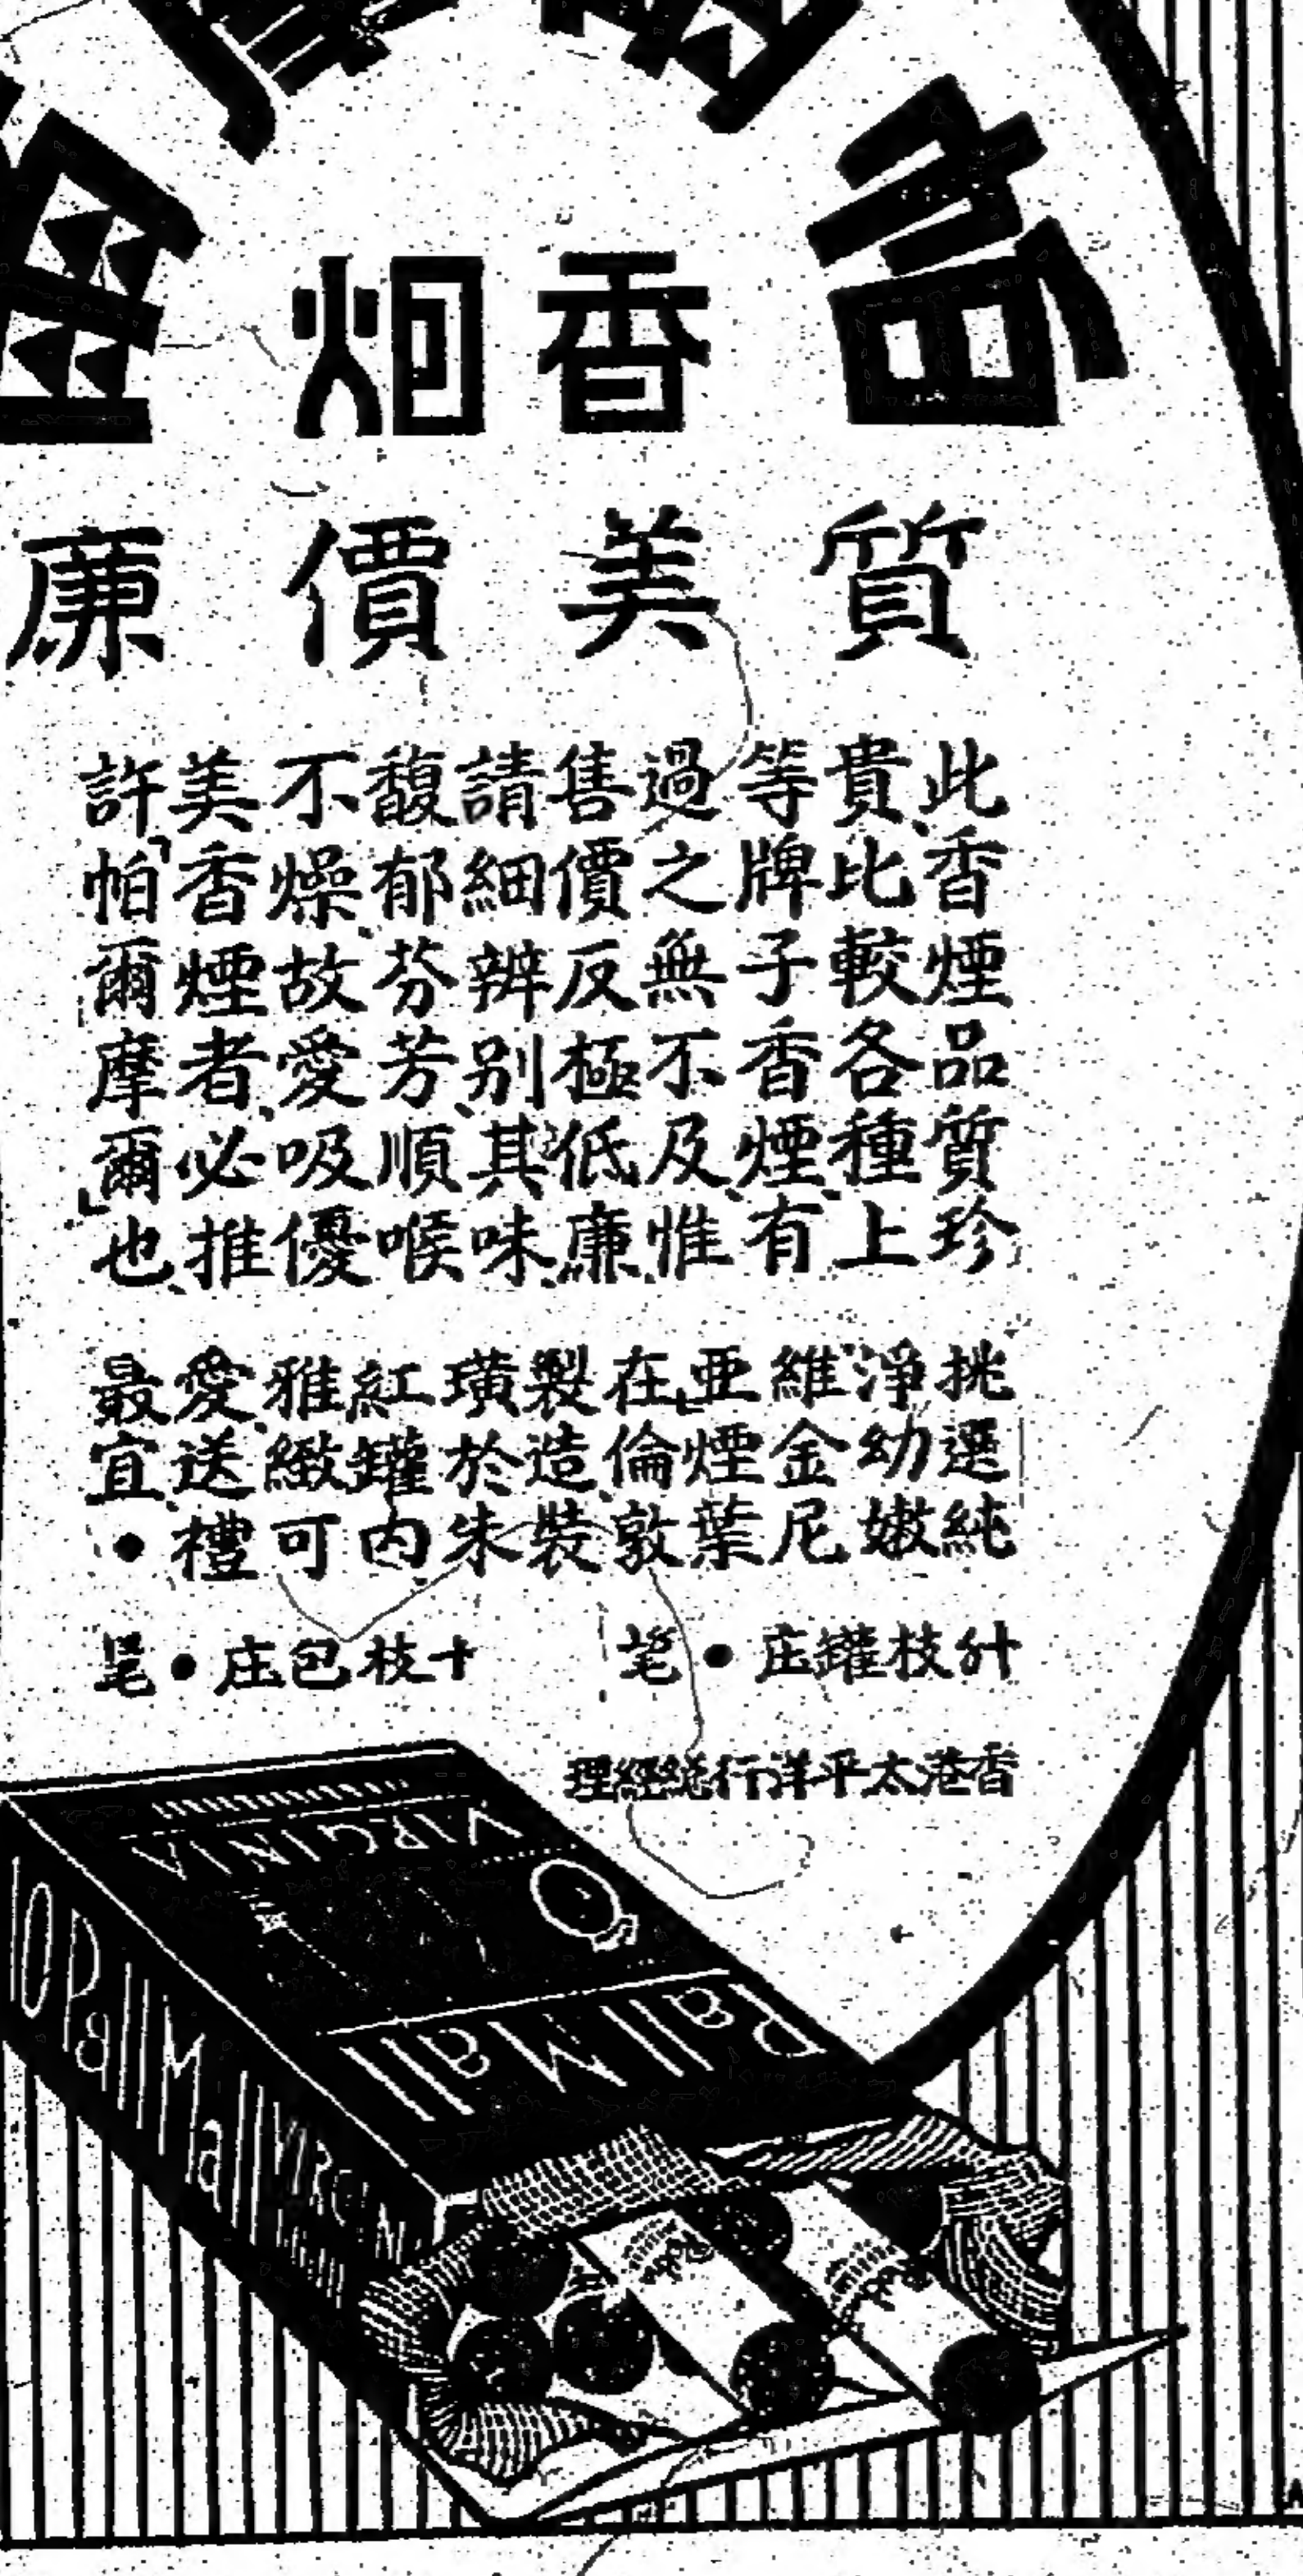 香烟
質美價廉
此香煙品質珍
貴、比較各種上
等牌子香煙、有
過之無不及、惟
售價反極低廉、
請細辨別、其味
馥郁芬芳、順喉
不燥、故愛吸優
美香煙者、必推
許「帕爾摩爾」也、
挑選純
淨幼嫩
維金尼
亞煙葉、
在倫敦
製造、裝
璜於朱
紅罐内、
雅緻可
愛、送禮
最宜•
枝罐庄•
十枝包庄•
香港太平洋行總經理
VIRGINIA
Pall Mall
10 Pall Mall